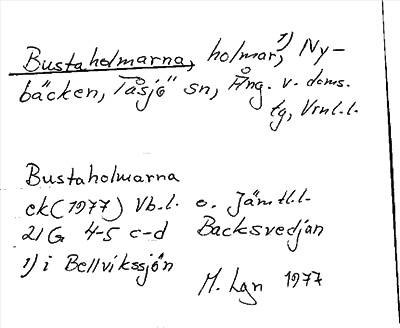 Bustaholmarna, holmar,¹⁾ Ny-
bäcken, Tåsjö sn, Ång. v. doms.
tg, Vrnl.l.
Bustaholmarna
ek (1977) Vb.l. o. Jämtl.l.
21G 4-5 c-d Backsvedjan
1) i Bellvikssjön
M. Lgn 1977